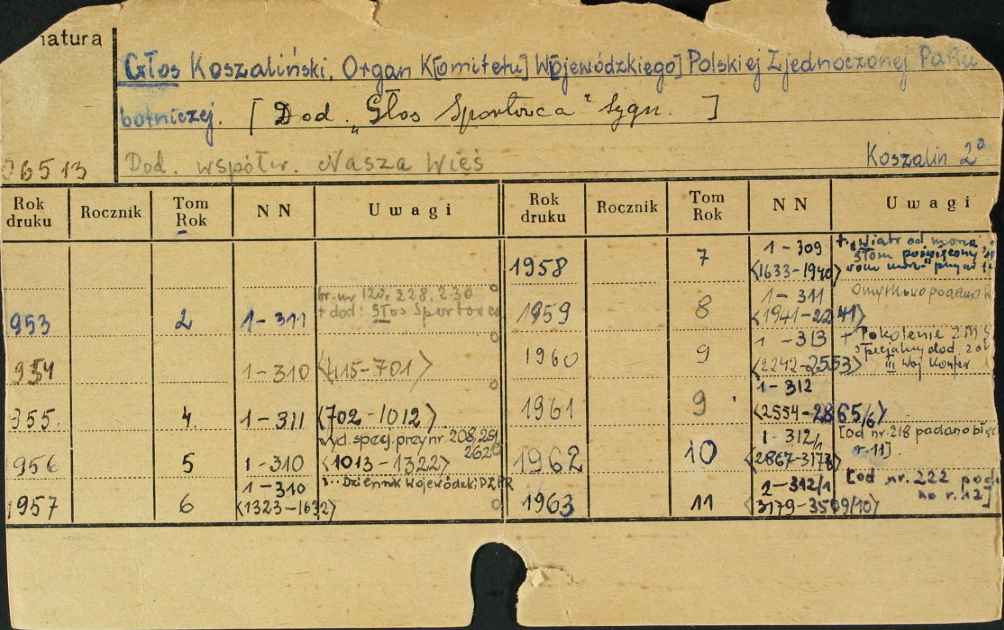 natura
Głos Koszaliński, Organ K[omitetu] W[ojewódzkiego] Polskiej Zjednoczonej Partii
botniczej. [Dod. „Głos Sportowca" Sygn. ]
06513 Dod. współw. Nasza Wieś Koszalin 2°
Rok druku Rocznik Tom Rok NN Uwagi Rok druku Rocznik Tom Rok NN Uwagi
1958 7 1-309 <1633-1940> + „Wiatr od morza
953 2 1-311 br. nr 120, 228, 230 + dod: Głos Sportowca
1959 8 1-311 <1941-2241> Omyłkowo podano
954 1-310 <415-701>
1960 9 1-313 <2242-2553> + Pokolenie ZMS specjalny dod. III Woj Konfer
955. 4. 1-311 <702-1012>
1961 9 1-312 <2554-2865/6>
956 5 1-310 wyd. specj. przy nr. 208, 251 262 <1013-1322>
1962 10 1-312/1 <2867-3178> [od nr. 218 podano błęd r. 11].
1957 6 1-310 <1323-1632> Dziennik Wojewódzki PZPR
1963 11 2-312/1 <3179-3509/10> [od nr. 222 pod no r. 12]